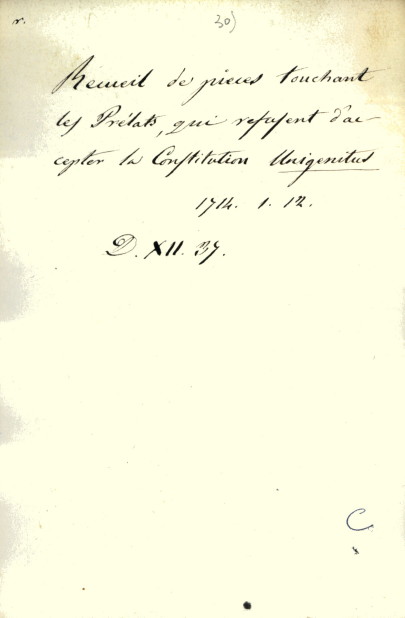 r.
30)
Recueil de pieces touchant
les Prélats, qui refusent d'ac
cepter la Constitution Unigenitus
1714. 1. 12.
D. XII. 37.
C